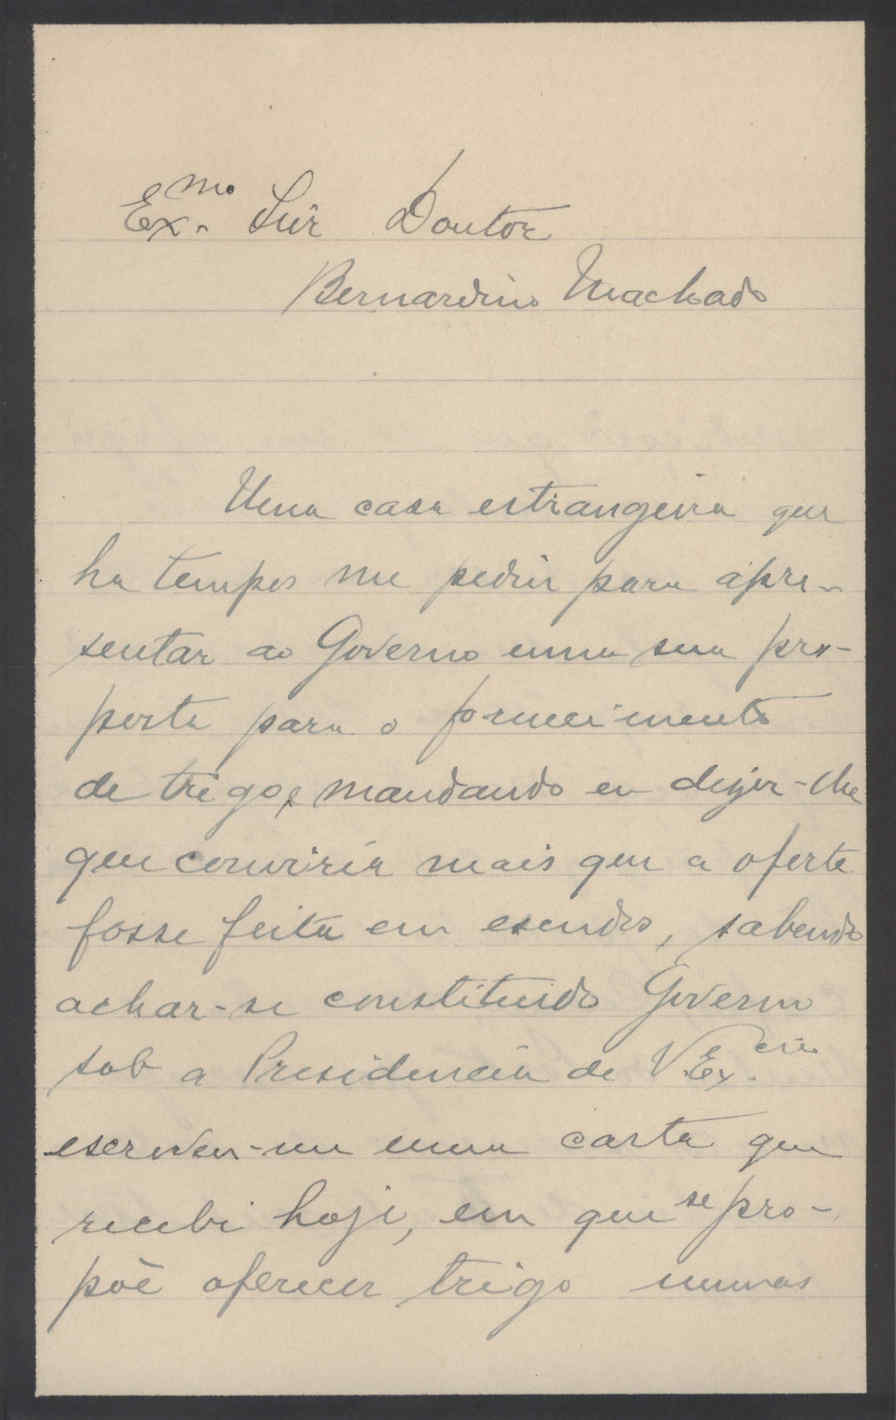 Ex.mo Snr Doutor
Bernardino Machado
Uma casa estrangeira que
ha tempos me pediu para apre-
sentar ao Governo uma sua pro-
posta para o fornecimento
de trigo, mandando eu dizer-lhe
que conviria mais que a oferta
fosse feita em escudos, sabendo
achar-se constituido Governo
sob a Presidencia de V. Ex.cia
escreveu-me uma carta que
recebi hoje, em que se pro-
põe oferecer trigo numas